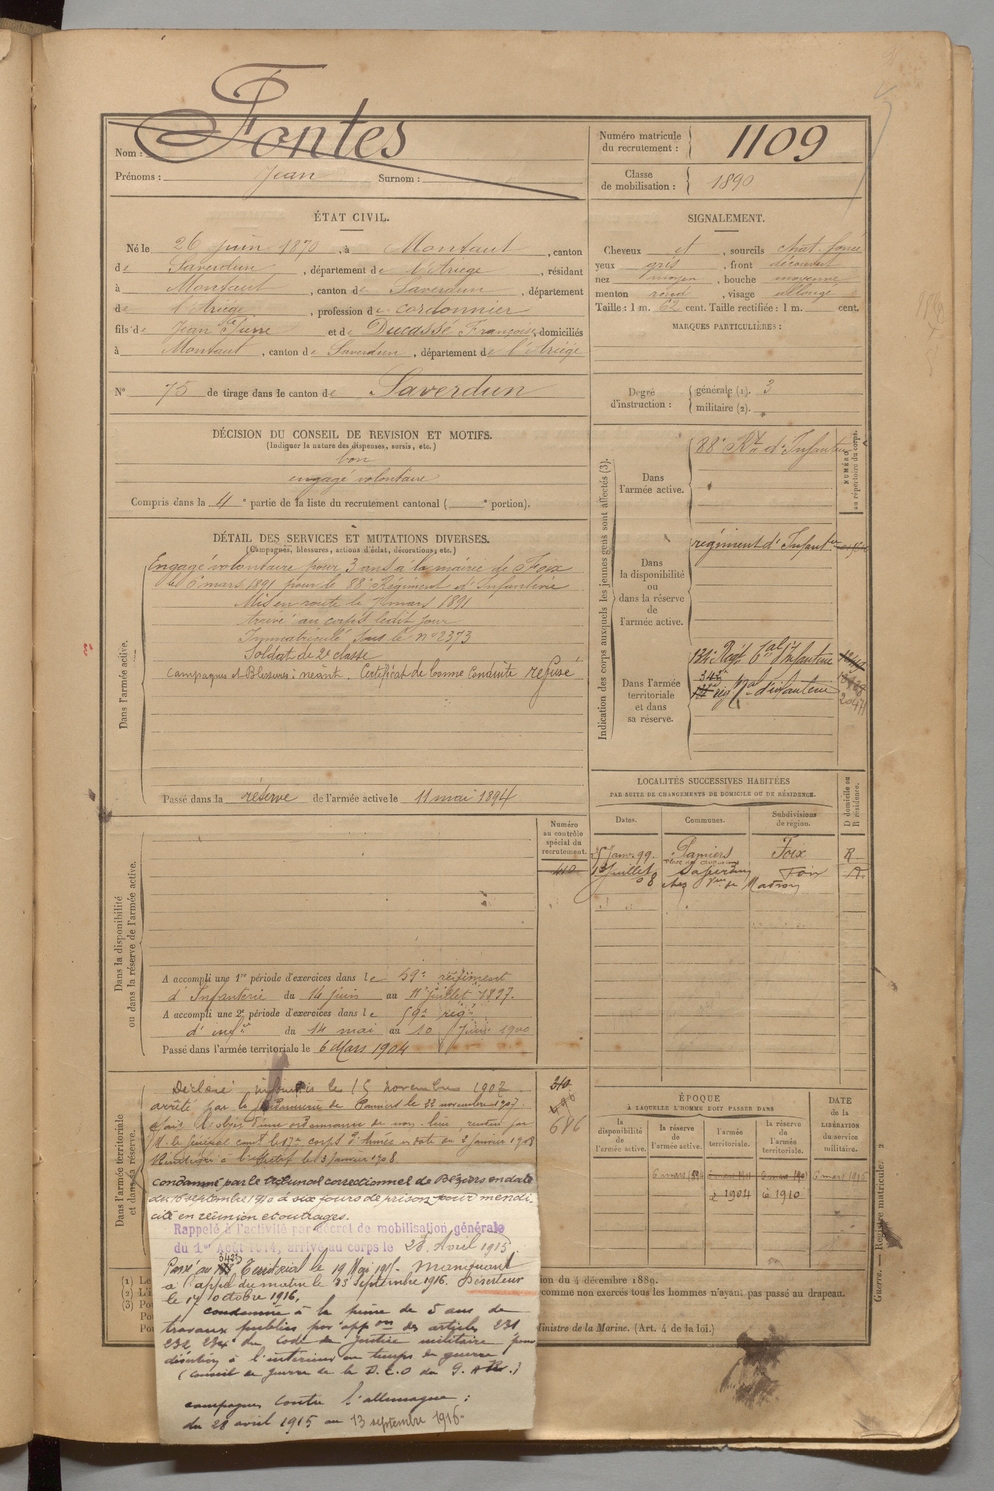 Nom : Fontes
Prénoms : Jean Surnom :
Numéro matricule du recrutement : 1109
Classe de mobilisation : 1890
ÉTAT CIVIL.
Né le 26 juin 1870, à Montaut, canton
de Saverdun, département de l'Ariège, résidant
à Montaut, canton de Saverdun, département
de l'Ariège, profession de cordonnier
fils de Jean Pierre et de Ducassé Françoise, domiciliés
à Montaut, canton de Saverdun, département de l'Ariège
N° 75 de tirage dans le canton de Saverdun
SIGNALEMENT.
Cheveux et, sourcils chat. foncé
yeux gris, front découvert
nez moyen, bouche moyenne
menton rond, visage allongé
Taille : 1 m. 62 cent. Taille rectifiée : 1 m. cent.
MARQUES PARTICULIÈRES :
Degré d'instruction :
générale (1). 3
militaire (2).
DÉCISION DU CONSEIL DE REVISION ET MOTIFS.
(Indiquer la nature des dispenses, sursis, etc.)
bon
engagé volontaire
Compris dans la 4e partie de la liste du recrutement cantonal ( e portion).
DÉTAIL DES SERVICES ET MUTATIONS DIVERSES.
(Campagnes, blessures, actions d'éclat, décorations, etc.)
Dans l'armée active.
Engagé volontaire pour 3 ans à la mairie de Foix
le 6 mars 1891 pour le 88e Régiment d'Infanterie
Mis en route le 7 mars 1891
arrivé au corps ledit jour
Immatriculé sous le n° 2373
Soldat de 2e classe
Campagnes et Blessures : néant. Certificat de bonne Conduite refusé
Passé dans la réserve de l'armée active le 11 mai 1894
Indication des corps auxquels les jeunes gens sont affectés (3).
NUMÉRO au répertoire du corps.
Dans l'armée active.
88e Rt d'Infanterie
Dans la disponibilité ou dans la réserve de l'armée active.
régiment d'Infantrie
Dans l'armée territoriale et dans sa réserve.
Regt tal d'Infanterie
342e
rég tal d'infanterie
20471
LOCALITÉS SUCCESSIVES HABITÉES
PAR SUITE DE CHANGEMENTS DE DOMICILE OU DE RÉSIDENCE.
Dates. Communes. Subdivisions de région. D domicile ou R résidence.
Janv. 99. Pamiers Foix R
Juillet 08 Saverdun Foix
chez Vve de Madron
Numéro au contrôle spécial du recrutement.
410
Dans la disponibilité ou dans la réserve de l'armée active.
A accompli une 1re période d'exercices dans le 59e régiment
d'Infanterie du 14 juin au 11 juillet 1897.
A accompli une 2e période d'exercices dans le 59e rég.
d'infie du 14 mai au 10 Juin 1900
Passé dans l'armée territoriale le 6 Mars 1904
Dans l'armée territoriale et dans sa réserve.
Déclaré insoumis le 15 novembre 1907
arrêté par la gendarmerie de Pamiers le 22 novembre 1907.
a fait l'objet d'une ordonnance de non lieu rendue par
M. le Général comt le 17e corps d'Armée en date du 2 janvier 1908
310
496
686
ÉPOQUE
À LAQUELLE L'HOMME DOIT PASSER DANS
la disponibilité de l'armée active. la réserve de l'armée active. l'armée territoriale. la réserve de l'armée territoriale.
DATE de la LIBÉRATION du service militaire.
6 mars 1894
1904 1910
condamné par le tribunal correctionnel de Béziers en date
du 16 septembre 1910 à six jours de prison pour mendi
cité en réunion et outrages.
Rappelé à l'activité par décret de mobilisation générale
du 1er Août 1914, arrivé au corps le 28 Avril 1915.
Passé au 342e Territorial le 19 Mai 1915. Manquant
à l'appel du matin le 13 septembre 1916. Déserteur
le 17 octobre 1916.
condamné à la peine de 5 ans de
travaux publics par appon des articles 231
232 234 du Code de justice militaire pour
désertion à l'intérieur en temps de guerre
(Conseil de guerre de la D.E.O du G.
campagnes contre l'allemagne :
du 28 avril 1915 au 13 septembre 1916.
(1) Le
(2) L'i
(3) Po
ion du 4 décembre 1889.
comme non exercés tous les hommes n'ayant pas passé au drapeau.
Ministre de la Marine. (Art. 4 de la loi.)
Guerre. — Registre matricule. 2